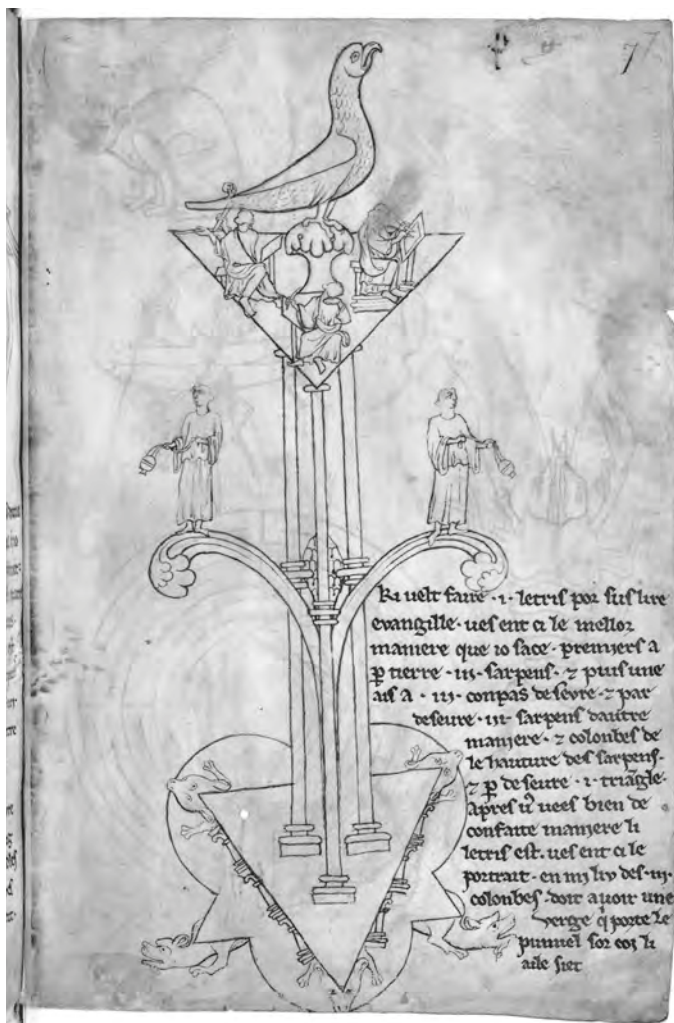 77
Ki velt faire · i · letris por sus lire
evangille · ves ent ci le mellor
maniere que io sace · premiers a
ꝑ tierre · iii · sarpens · ⁊ puis une
ais a · iii · conpas deseure · ⁊ par
deseure · iii · sarpens dautre
maniere · ⁊ colonbes de
le hauture des sarpens ·
⁊ ꝑ deseure · i · triãgle ·
apres v9 vees bien de
confaite maniere li
letris est · ves ent ci le
portrait · en mi liv des · iii ·
colonbes · doit avoir une
verge q̇ porte le
pumiel sor coi li
aile siet